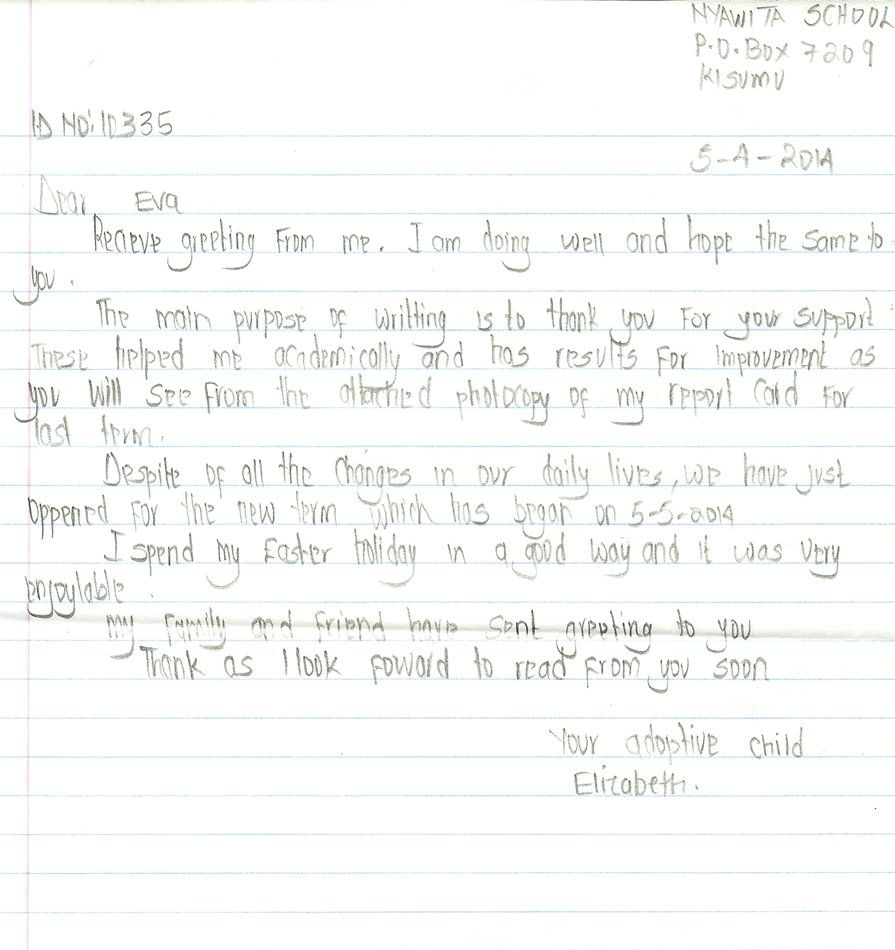 NYAWITA SCHOOL
P.O. Box 7209
KISUMU
ID NO: 10335
5-4-2014
Dear Eva
Recieve greeting From me. I am doing well and hope the same to
you.
The main purpose of writting is to thank you For your support
These helped me academically and has results For improvement as
you will see From the attached photocopy of my report Card For
last term.
Despite of all the changes in our daily lives, we have just
oppened For the new term which has began on 5-5-2014
I spend my Easter holiday in a good way and it was very
enjoylable.
my Family and Friend have sent greeting to you
Thank as I look Foward to read From you soon
Your adoptive child
Elizabeth.